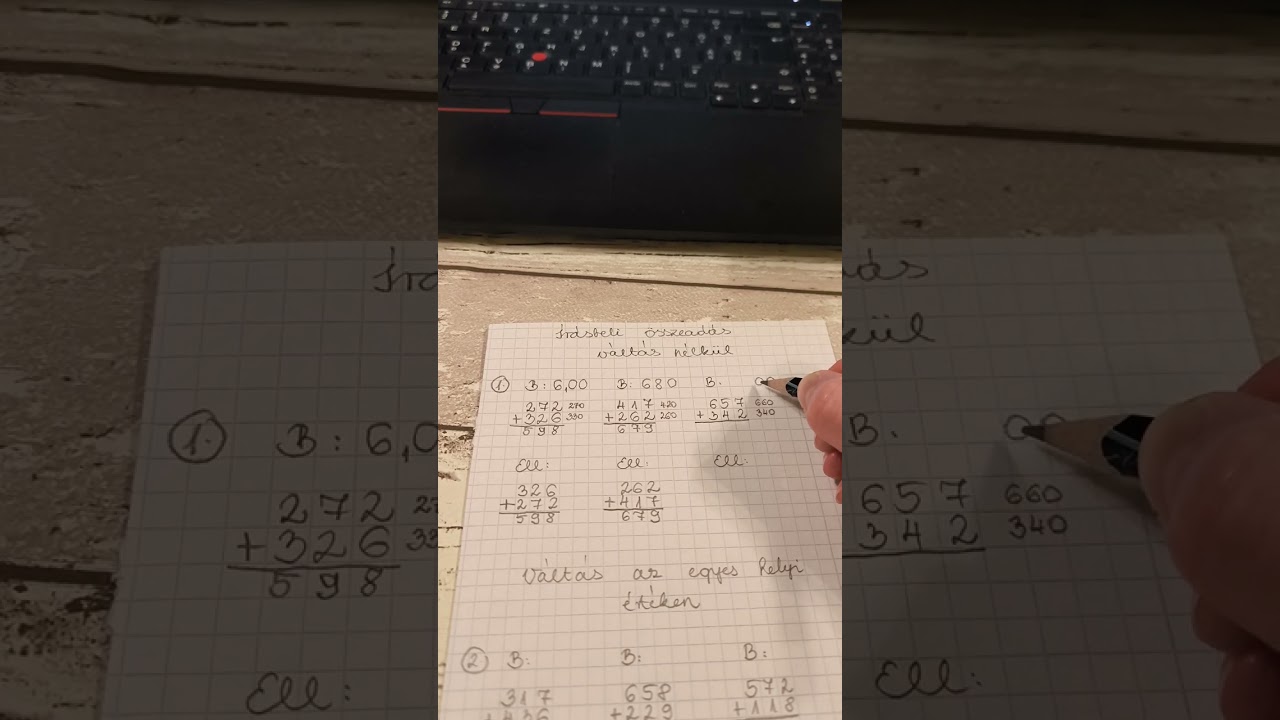 Írásbeli összeadás
váltás nélkül
1. B: 6,00 B: 680 B. 00
272 270 417 420 657 660
+326 330 +262 260 +342 340
598 679
Ell: Ell: Ell:
326 262
+272 +417
598 679
Váltás az egyes helyi
étéken
2 B: B: B:
317 658 572
+229 +118